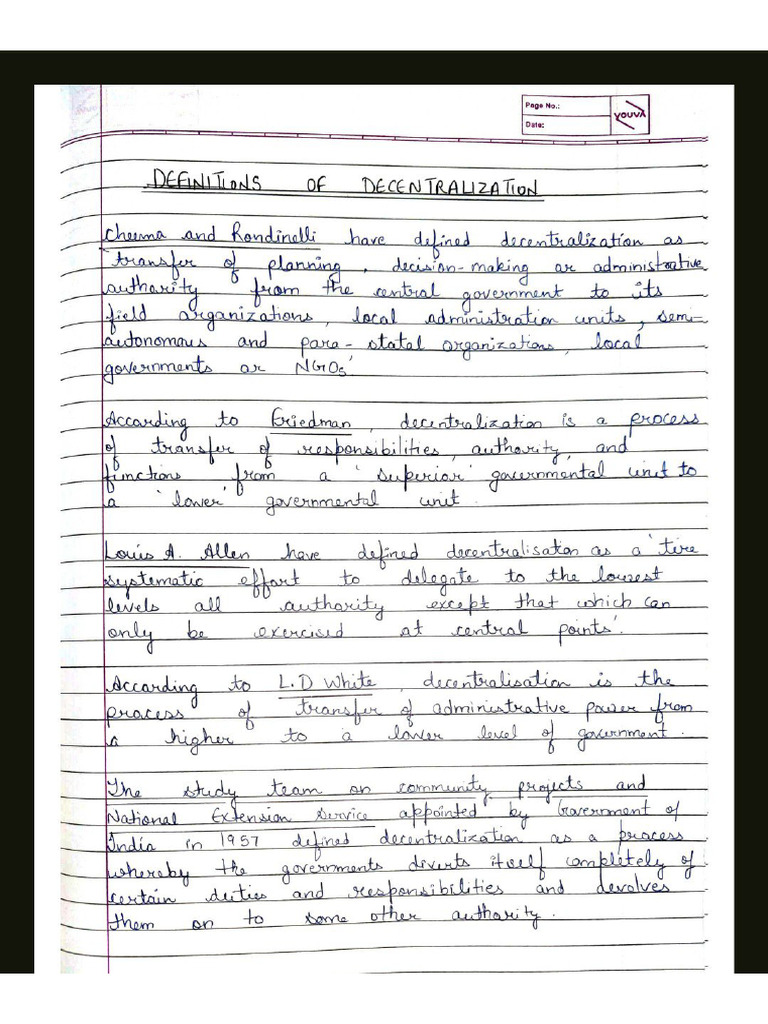 Page No.:
Date:
YOUVA
DEFINITIONS OF DECENTRALIZATION
Cheema and Rondinelli have defined decentralization as
'transfer of planning, decision-making or administrative
authority from the central government to its
field organizations, local administration units, semi-
autonomous and para-statal organizations, local
governments or NGOs'
According to Friedman, decentralization is a process
of transfer of responsibilities, authority, and
functions from a 'superior' governmental unit to
a 'lower' governmental unit.
Louis A. Allen have defined decentralisation as a 'tire
systematic effort to delegate to the lowest
levels all authority except that which can
only be exercised at central points'.
According to L.D White, decentralisation is the
process of transfer of administrative power from
a higher to a lower level of government.
The study team on community projects and
National Extension Service appointed by Government of
India in 1957 defined decentralization as a process
whereby the governments diverts itself completely of
certain duties and responsibilities and devolves
them on to some other authority.